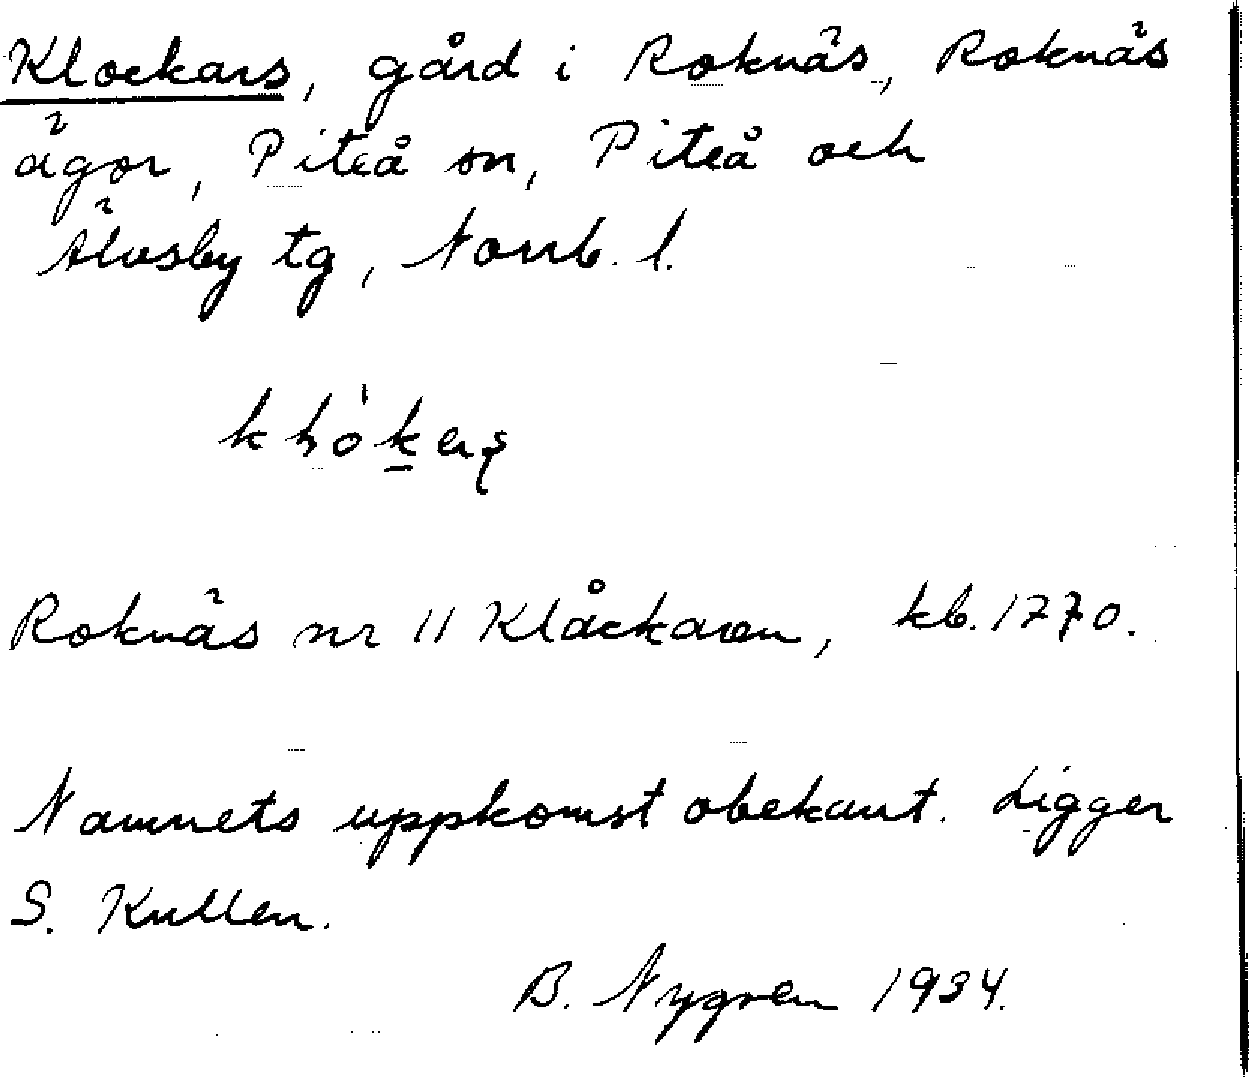 Klockars, gård i Roknäs, Roknäs
ägor, Piteå sn, Piteå och
Älvsby tg, Norrb. l.
Roknäs nr 11 Klåckaren, kb. 1770.
Namnets uppkomst obekant. Ligger
S. Kullen.
B. Nygren 1934.